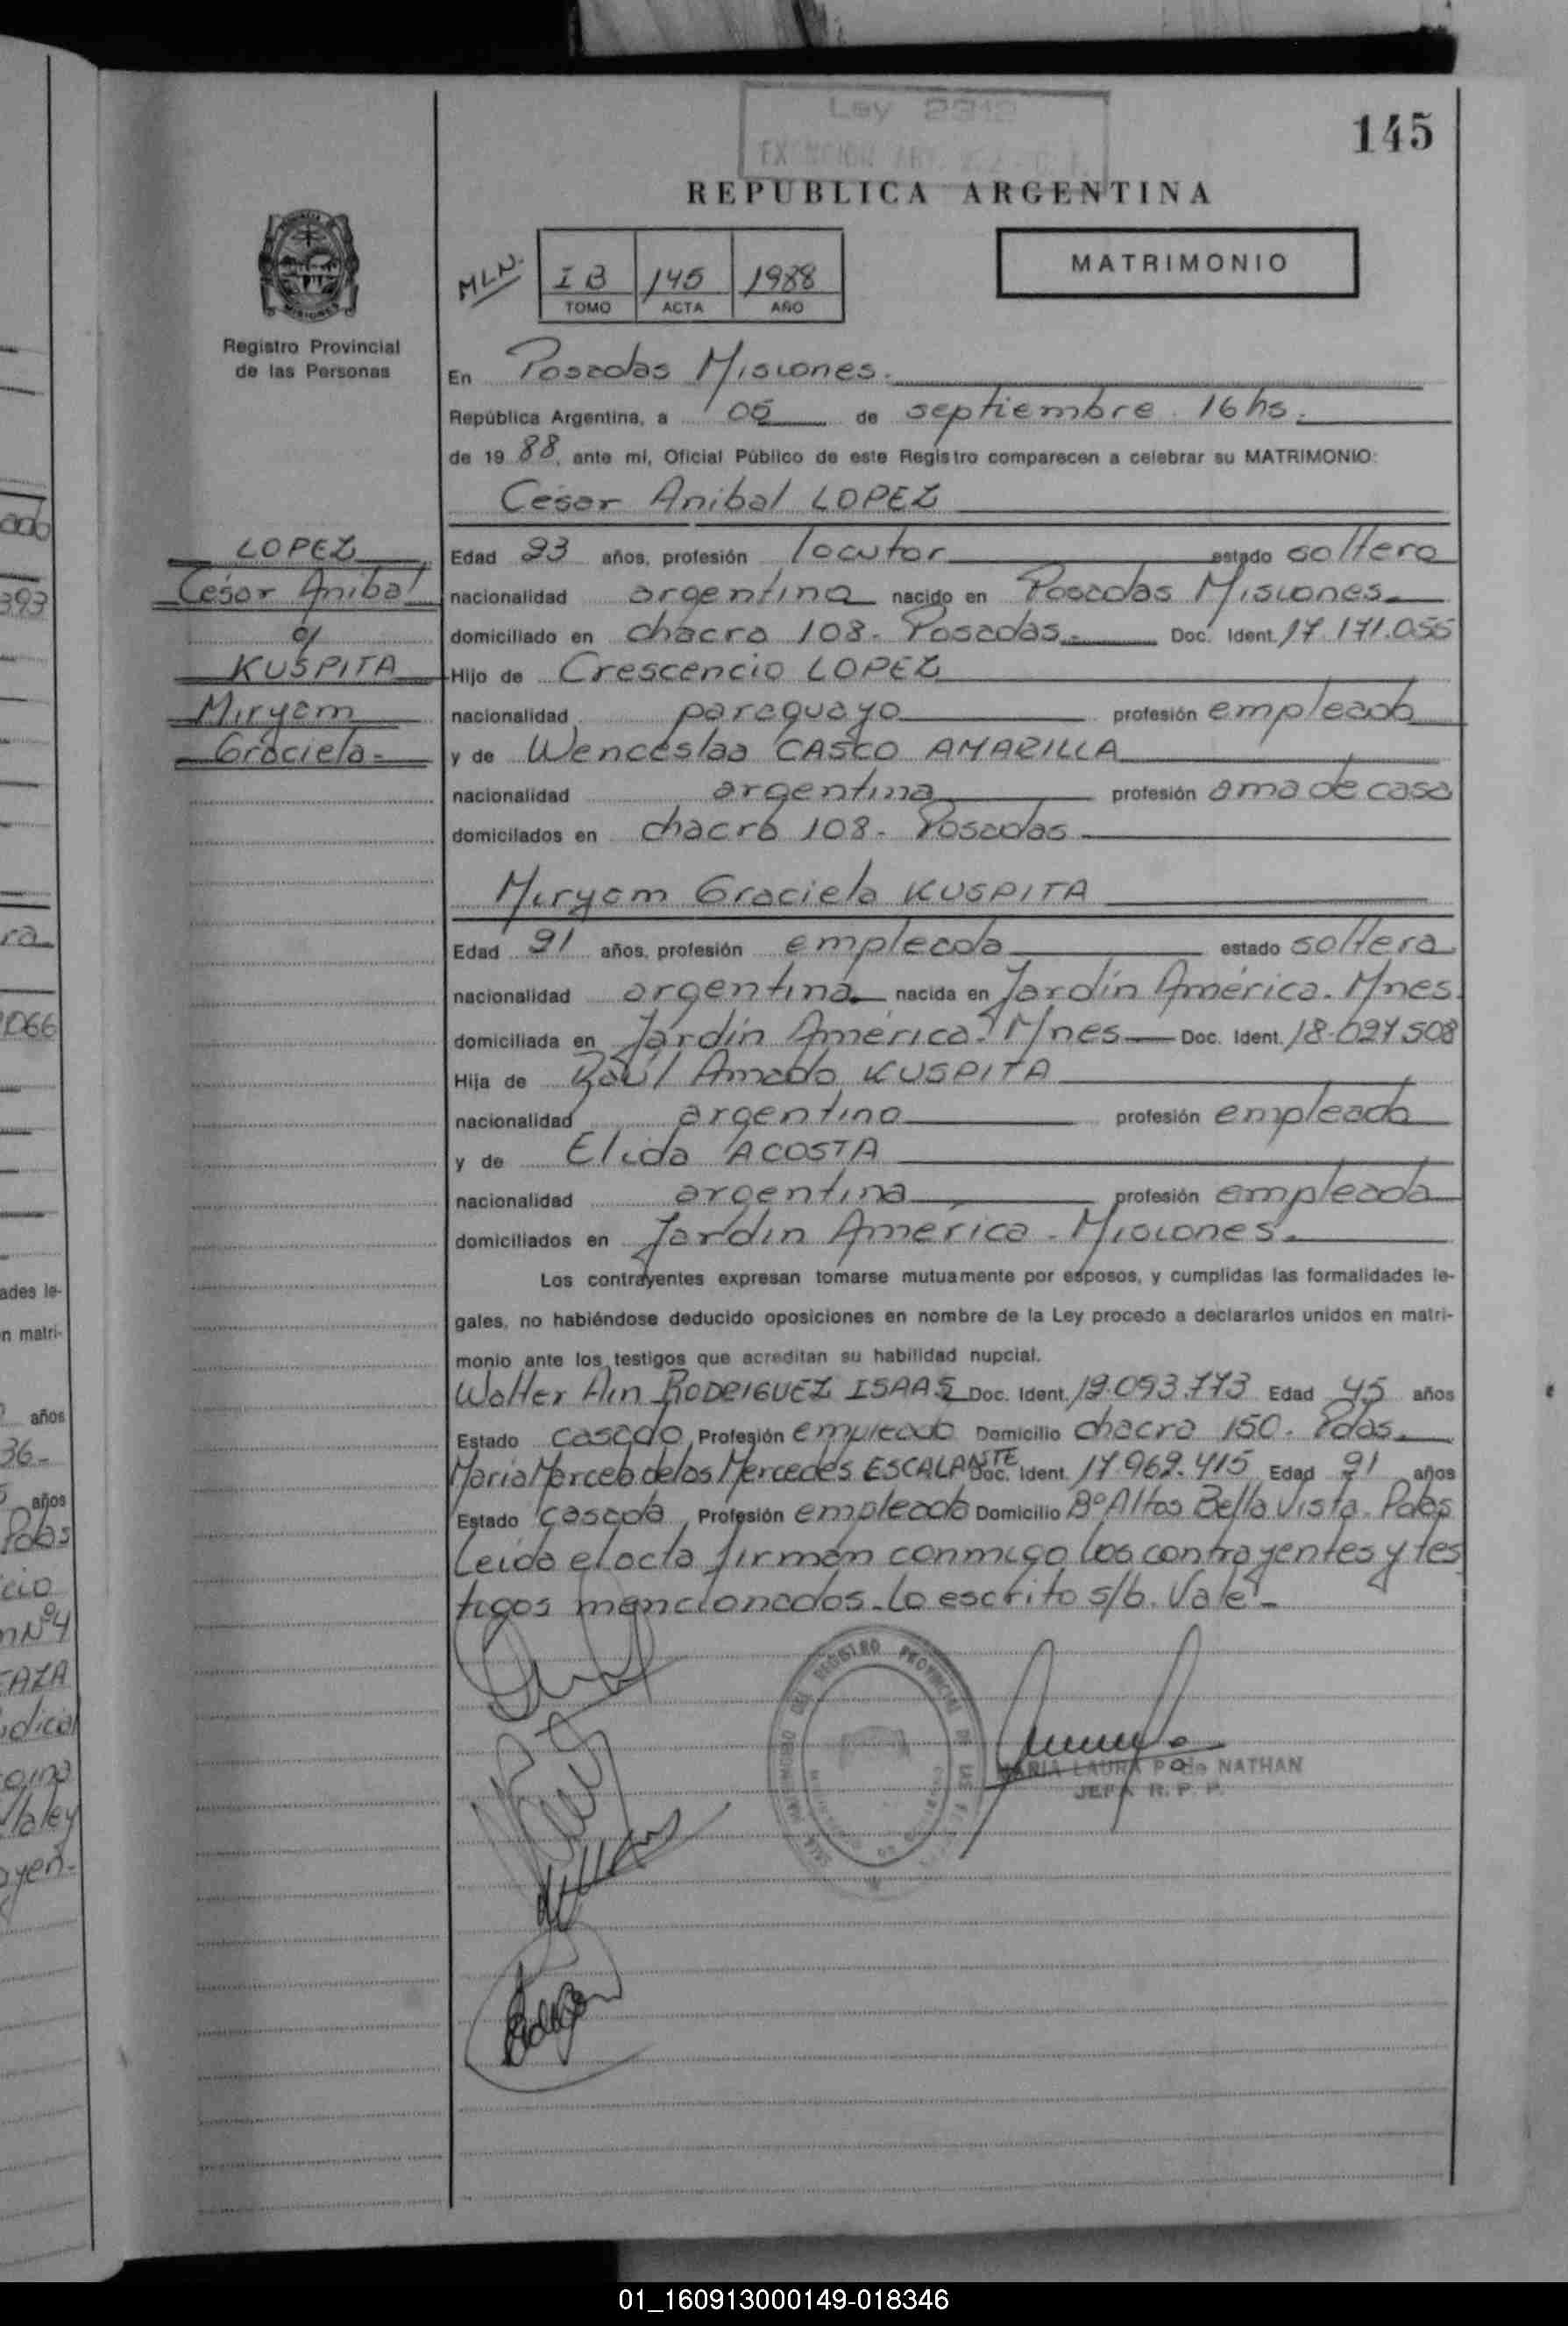 Ley 2312
145
REPUBLICA ARGENTINA
MATRIMONIO
MLN.
I B 145 1988
TOMO ACTA AÑO
Registro Provincial
de las Personas
En Posadas Misiones.
República Argentina, a 05 de septiembre. 16 hs.
de 1988, ante mí, Oficial Público de este Registro comparecen a celebrar su MATRIMONIO:
César Anibal LOPEZ
LOPEZ
César Anibal
c/
KUSPITA
Miryam
Graciela-
Edad 23 años, profesión locutor estado soltero
nacionalidad argentina nacido en Posadas Misiones.
domiciliado en chacra 108- Posadas- Doc. Ident. 17.171.055
Hijo de Crescencio LOPEZ
nacionalidad paraguayo profesión empleado
y de Wenceslaa CASCO AMARILLA
nacionalidad argentina profesión ama de casa
domicilados en chacra 108- Posadas
Miryam Graciela KUSPITA
Edad 21 años, profesión empleada estado soltera
nacionalidad argentina nacida en Jardín América. Mnes.
domiciliada en Jardín América. Mnes- Doc. Ident. 18.627.508
Hija de Raúl Amado KUSPITA
nacionalidad argentino profesión empleado
y de Elida ACOSTA
nacionalidad argentina profesión empleada
domiciliados en Jardín América - Misiones.
Los contrayentes expresan tomarse mutuamente por esposos, y cumplidas las formalidades le-
gales, no habiéndose deducido oposiciones en nombre de la Ley procedo a declararlos unidos en matri-
monio ante los testigos que acreditan su habilidad nupcial.
Walter RODRIGUEZ ISAAS Doc. Ident. 12.093.773 Edad 45 años
Estado casado Profesión empleado Domicilio chacra 150. Pdas.
María Marcela de las Mercedes ESCALANTE Doc. Ident. 17.962.415 Edad 21 años
Estado casada Profesión empleada Domicilio Bº Altos Bella Vista. Pdas
Leida el acta firman conmigo los contrayentes y tes
tigos mencionados. Lo escrito s/b. Vale-
REGISTRO PROVINCIAL DE LAS
MARIA LAURA P. de NATHAN
JEFA R. P. P.
01_160913000149-018346